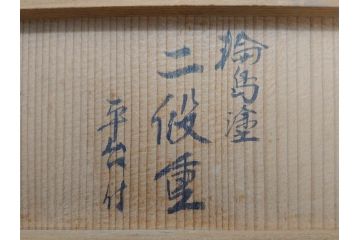 輪島塗
二段重
平台付